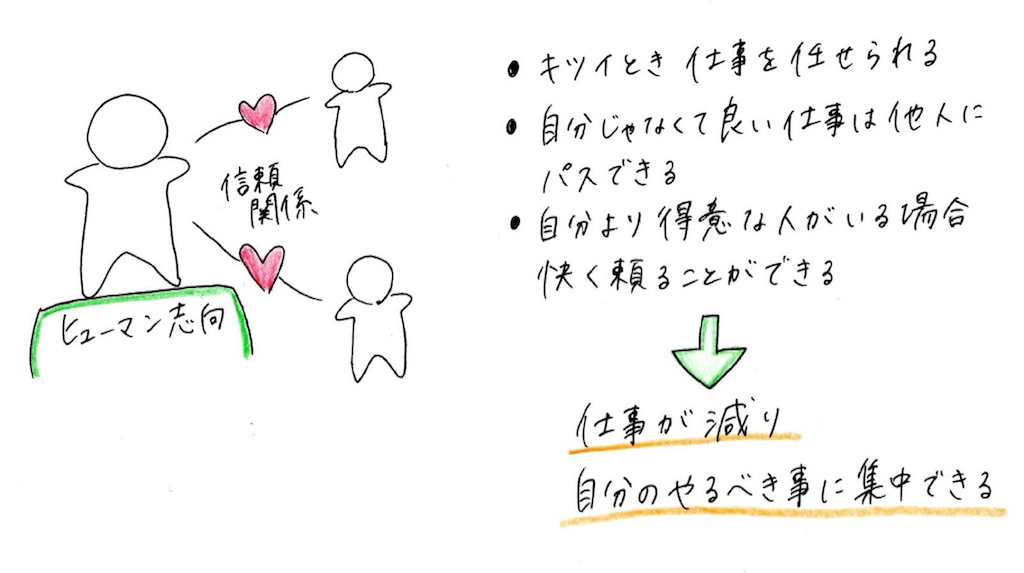 信頼
関係
ヒューマン志向
• キツイとき仕事を任せられる
• 自分じゃなくて良い仕事は他人に
パスできる
• 自分より得意な人がいる場合
快く頼ることができる
仕事が減り
自分のやるべき事に集中できる